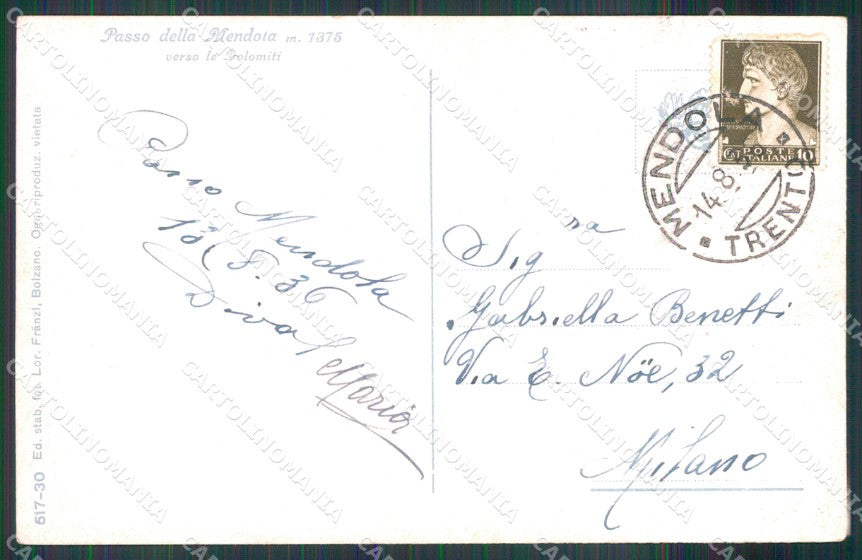 Passo della Mendola m. 1375
verso le Dolomiti
Passo Mendola
13/8.36
Diva
Maria
Ed. stab. fot. Lor. Fränzl, Bolzano. Ogni riproduz. vietata
517-30
POSTE
ITALIANE 10
MENDOLA
TRENTO
14.8.
Sig na
Gabriella Benetti
Via E. Nöe, 32
Milano
CARTOLINOMANIA